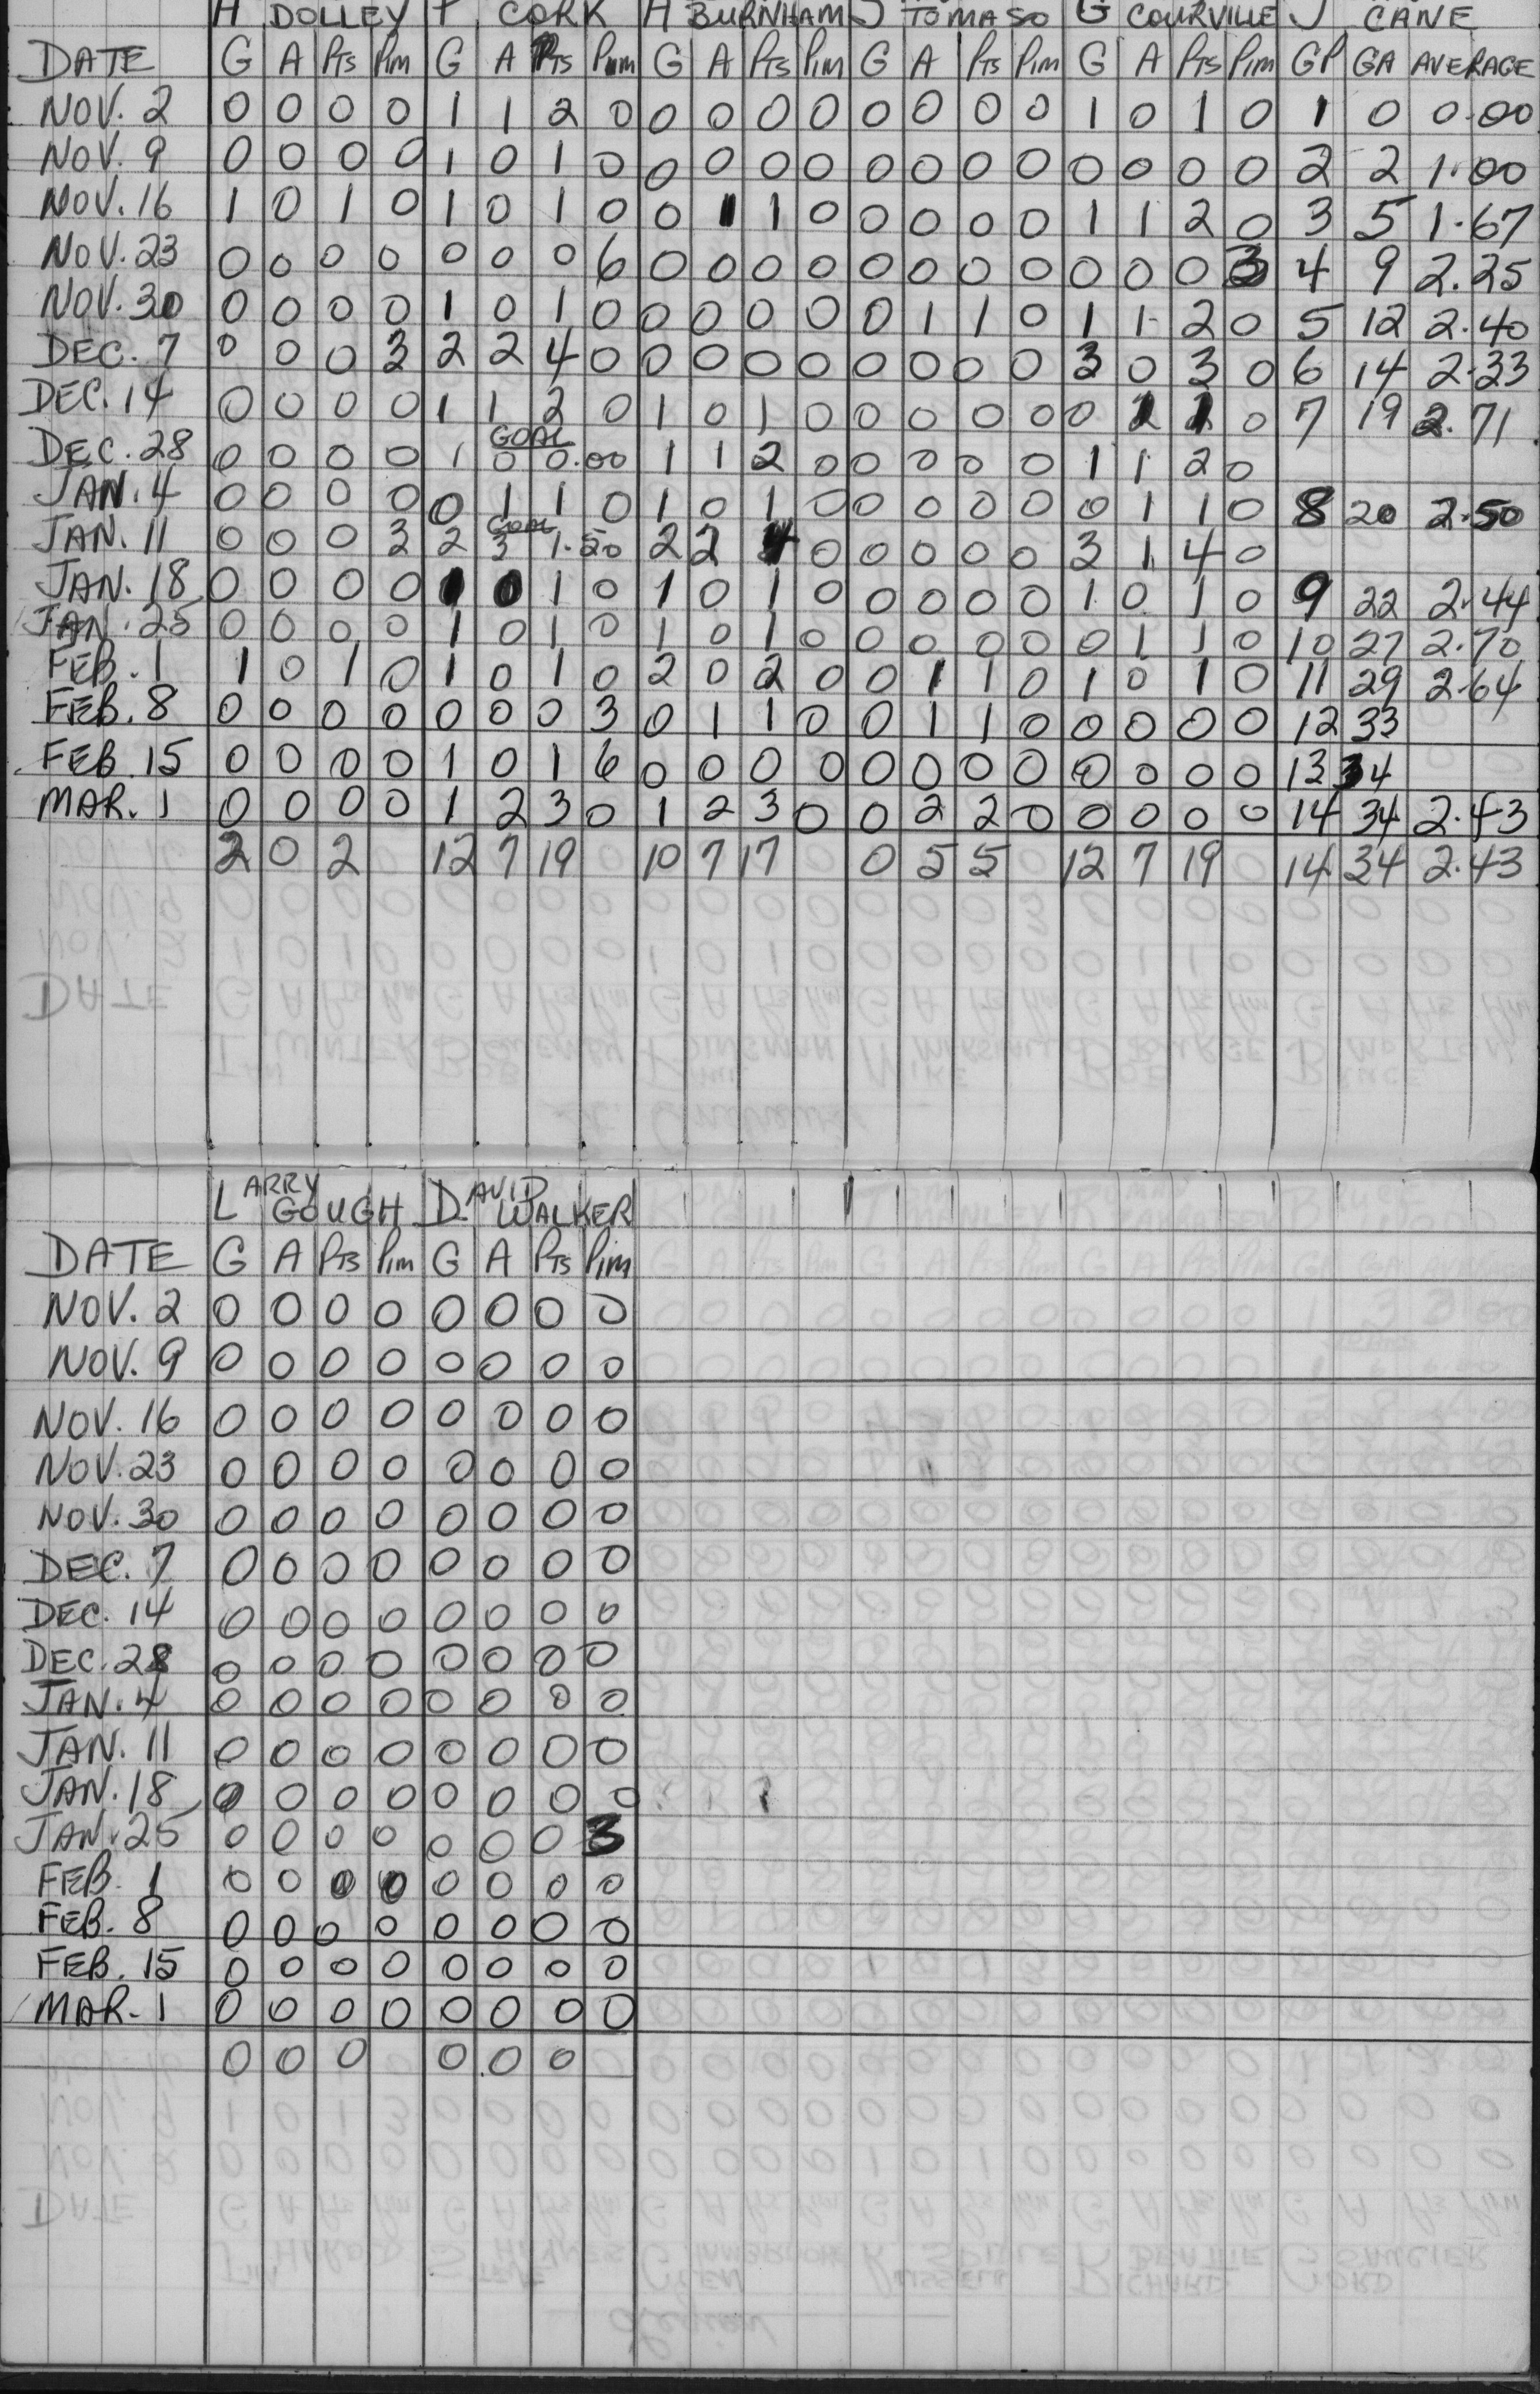 H DOLLEY P CORK H BURNHAM J TOMASO G COURVILLE J CANE
DATE G A Pts Pim G A Pts Pim G A Pts Pim G A Pts Pim G A Pts Pim GP GA AVERAGE
NOV. 2 0 0 0 0 1 1 2 0 0 0 0 0 0 0 0 0 1 0 1 0 1 0 0.00
NOV. 9 0 0 0 0 1 0 1 0 0 0 0 0 0 0 0 0 0 0 0 0 2 2 1.00
NOV. 16 1 0 1 0 1 0 1 0 0 1 1 0 0 0 0 0 1 1 2 0 3 5 1.67
NOV. 23 0 0 0 0 0 0 0 6 0 0 0 0 0 0 0 0 0 0 0 3 4 9 2.25
NOV. 30 0 0 0 0 1 0 1 0 0 0 0 0 0 1 1 0 1 1 2 0 5 12 2.40
DEC. 7 0 0 0 3 2 2 4 0 0 0 0 0 0 0 0 0 3 0 3 0 6 14 2.33
DEC. 14 0 0 0 0 1 1 2 0 1 0 1 0 0 0 0 0 0 1 1 0 7 19 2.71
GOAL
DEC. 28 0 0 0 0 1 0 0.00 1 1 2 0 0 0 0 0 1 1 2 0
JAN. 4 0 0 0 0 0 1 1 0 1 0 1 0 0 0 0 0 0 1 1 0 8 20 2.50
GOAL
JAN. 11 0 0 0 3 2 3 1.50 2 2 4 0 0 0 0 0 3 1 4 0
JAN. 18 0 0 0 0 1 0 1 0 1 0 1 0 0 0 0 0 1 0 1 0 9 22 2.44
JAN. 25 0 0 0 0 1 0 1 0 1 0 1 0 0 0 0 0 0 1 1 0 10 27 2.70
FEB. 1 1 0 1 0 1 0 1 0 2 0 2 0 0 1 1 0 1 0 1 0 11 29 2.64
FEB. 8 0 0 0 0 0 0 0 3 0 1 1 0 0 1 1 0 0 0 0 0 12 33
FEB. 15 0 0 0 0 1 0 1 6 0 0 0 0 0 0 0 0 0 0 0 0 13 34
MAR. 1 0 0 0 0 1 2 3 0 1 2 3 0 0 2 2 0 0 0 0 0 14 34 2.43
2 0 2 12 7 19 10 7 17 0 5 5 12 7 19 14 34 2.43
LARRY GOUGH DAVID WALKER
DATE G A Pts Pim G A Pts Pim
NOV. 2 0 0 0 0 0 0 0 0
NOV. 9 0 0 0 0 0 0 0 0
NOV. 16 0 0 0 0 0 0 0 0
NOV. 23 0 0 0 0 0 0 0 0
NOV. 30 0 0 0 0 0 0 0 0
DEC. 7 0 0 0 0 0 0 0 0
DEC. 14 0 0 0 0 0 0 0 0
DEC. 28 0 0 0 0 0 0 0 0
JAN. 4 0 0 0 0 0 0 0 0
JAN. 11 0 0 0 0 0 0 0 0
JAN. 18 0 0 0 0 0 0 0 0
JAN. 25 0 0 0 0 0 0 0 3
FEB. 1 0 0 0 0 0 0 0 0
FEB. 8 0 0 0 0 0 0 0 0
FEB. 15 0 0 0 0 0 0 0 0
MAR. 1 0 0 0 0 0 0 0 0
0 0 0 0 0 0